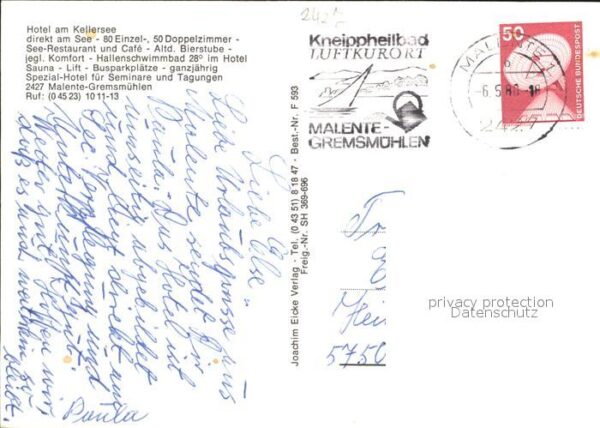 2427
Hotel am Kellersee
direkt am See - 80 Einzel-, 50 Doppelzimmer -
See-Restaurant und Café - Altd. Bierstube -
jegl. Komfort - Hallenschwimmbad 28° im Hotel
Sauna - Lift - Busparkplätze - ganzjährig
Spezial-Hotel für Seminare und Tagungen
2427 Malente-Gremsmühlen
Ruf: (0 45 23) 10 11-13
Kneippheilbad
LUFTKURORT
MALENTE-
GREMSMÜHLEN
MALENTE 1
-6.5.80-18
2427
50
DEUTSCHE BUNDESPOST
Joachim Eicke Verlag - Tel. (0 43 51) 8 18 47 - Best.-Nr. F 593
Freig.-Nr. SH 369-696
Liebe Else!
Liebe Urlaubsgrüsse aus
Malente sendet Dir
Paula. Das Hotel ist
umseitig abgebildet
und liegt direkt am
See. Verpflegung und
Unterkunft gut.
Wetter gut. Hoffen wir,
daß es und weiterhin so
bleibt.
Paula
5750
privacy protection
Datenschutz